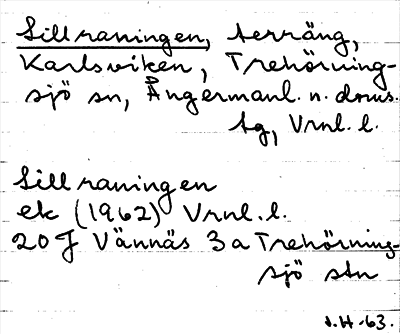 Lillraningen, terräng,
Karlsviken, Trehörning-
sjö sn, Ångermanl. n. doms.
tg, Vrnl. l.
Lillraningen
ek (1962) Vrnl. l.
20 J Vännäs 3 a Trehörning-
sjö stn
J. H -63.